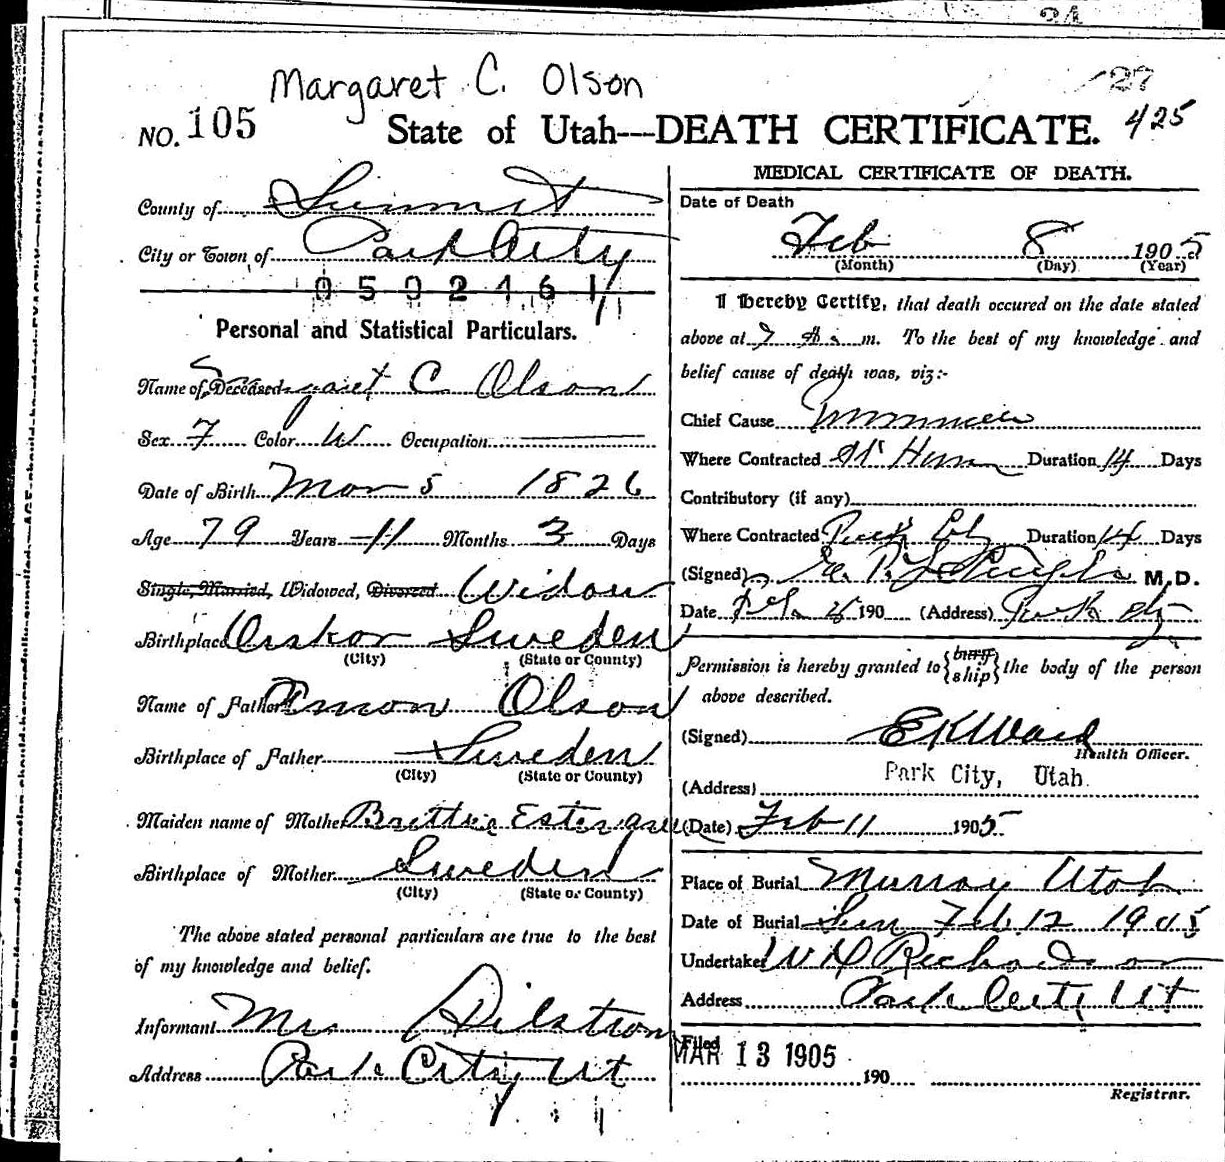 Margaret C. Olson
27
425
NO. 105
State of Utah---DEATH CERTIFICATE.
County of Summit
City or Town of Park City
0502461
Personal and Statistical Particulars.
Name of Deceased Margaret C Olson
Sex F Color W Occupation
Date of Birth Mar 5 1826
Age 79 Years 11 Months 3 Days
Single, Married, Widowed, Divorced Widow
Birthplace Sweden
(City) (State or County)
Name of Father Olson
Birthplace of Father Sweden
(City) (State or County)
Maiden name of Mother
Birthplace of Mother Sweden
(City) (State or County)
The above stated personal particulars are true to the best
of my knowledge and belief.
Informant Mrs
Address Park City Ut
MEDICAL CERTIFICATE OF DEATH.
Date of Death
Feb 8 1905
(Month) (Day) (Year)
I Hereby Certify, that death occured on the date stated
above at 7 A. m. To the best of my knowledge and
belief cause of death was, viz:-
Chief Cause
Where Contracted At Home Duration 14 Days
Contributory (if any)
Where Contracted Park City Duration 14 Days
(Signed) M.D.
Date 190 (Address) Park City
Permission is hereby granted to {bury ship} the body of the person
above described.
(Signed) E K Ward
Health Officer.
(Address) Park City, Utah.
(Date) Feb 11 1905
Place of Burial Murray Utah
Date of Burial Sun Feb. 12 1905
Undertaker W D Richardson
Address Park City Ut
Filed
MAR 13 1905
190
Registrar.